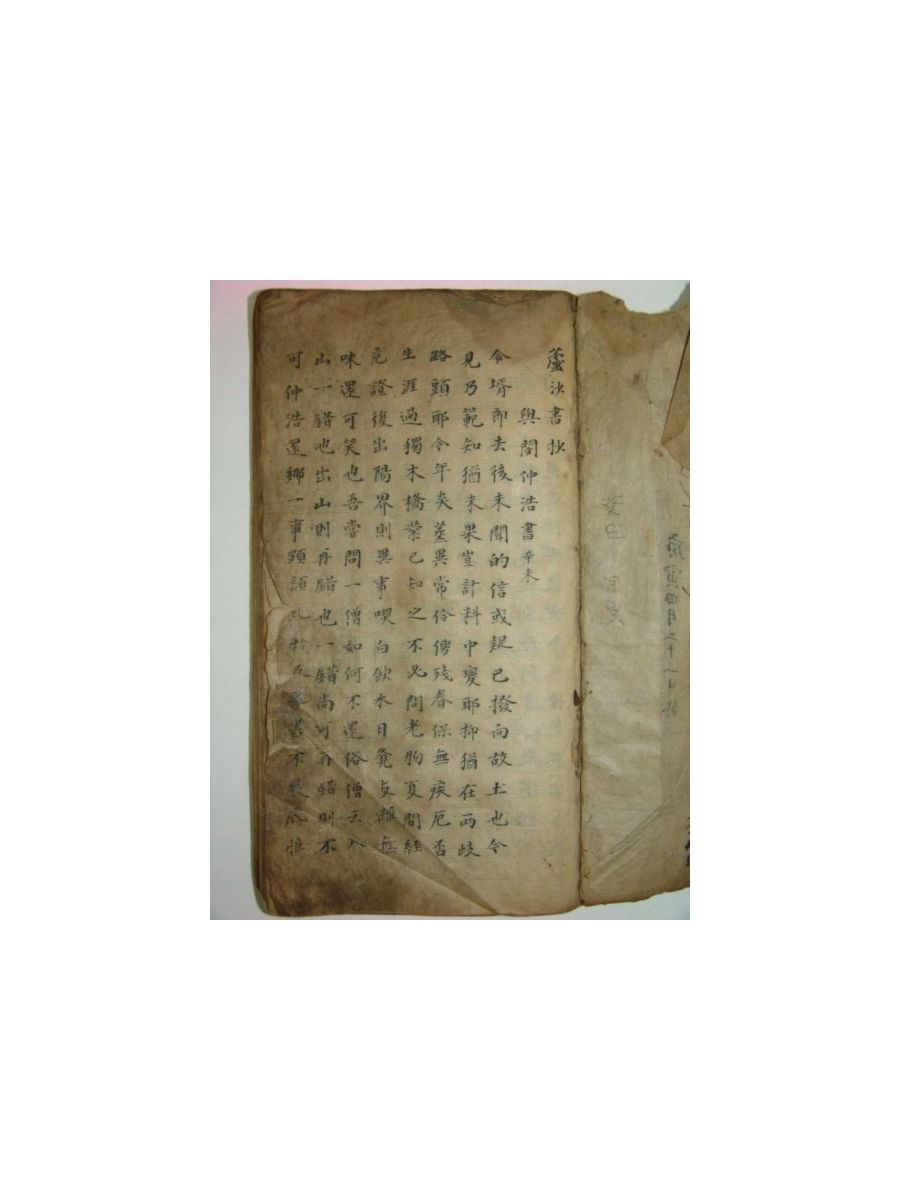 庚寅四月二十八日
癸巳
蘆沙書抄
與閔仲浩書 辛未
令壻郎去後未聞的信或疑已撥向故土也令
見乃範知猶未果豈計料中變耶抑猶在兩歧
路頭耶今年炎蒸異常伶俜殘眷保無疾厄否
生涯過獨木橋業已知之不必問老物夏間經
危證復出陽界則異事喫白飲水日無
味還可笑也吾嘗問一僧如何不還俗僧云入
山一錯也出山則再錯也一錯尚可再錯則不
可仲浩還鄉一事頗類此故書不